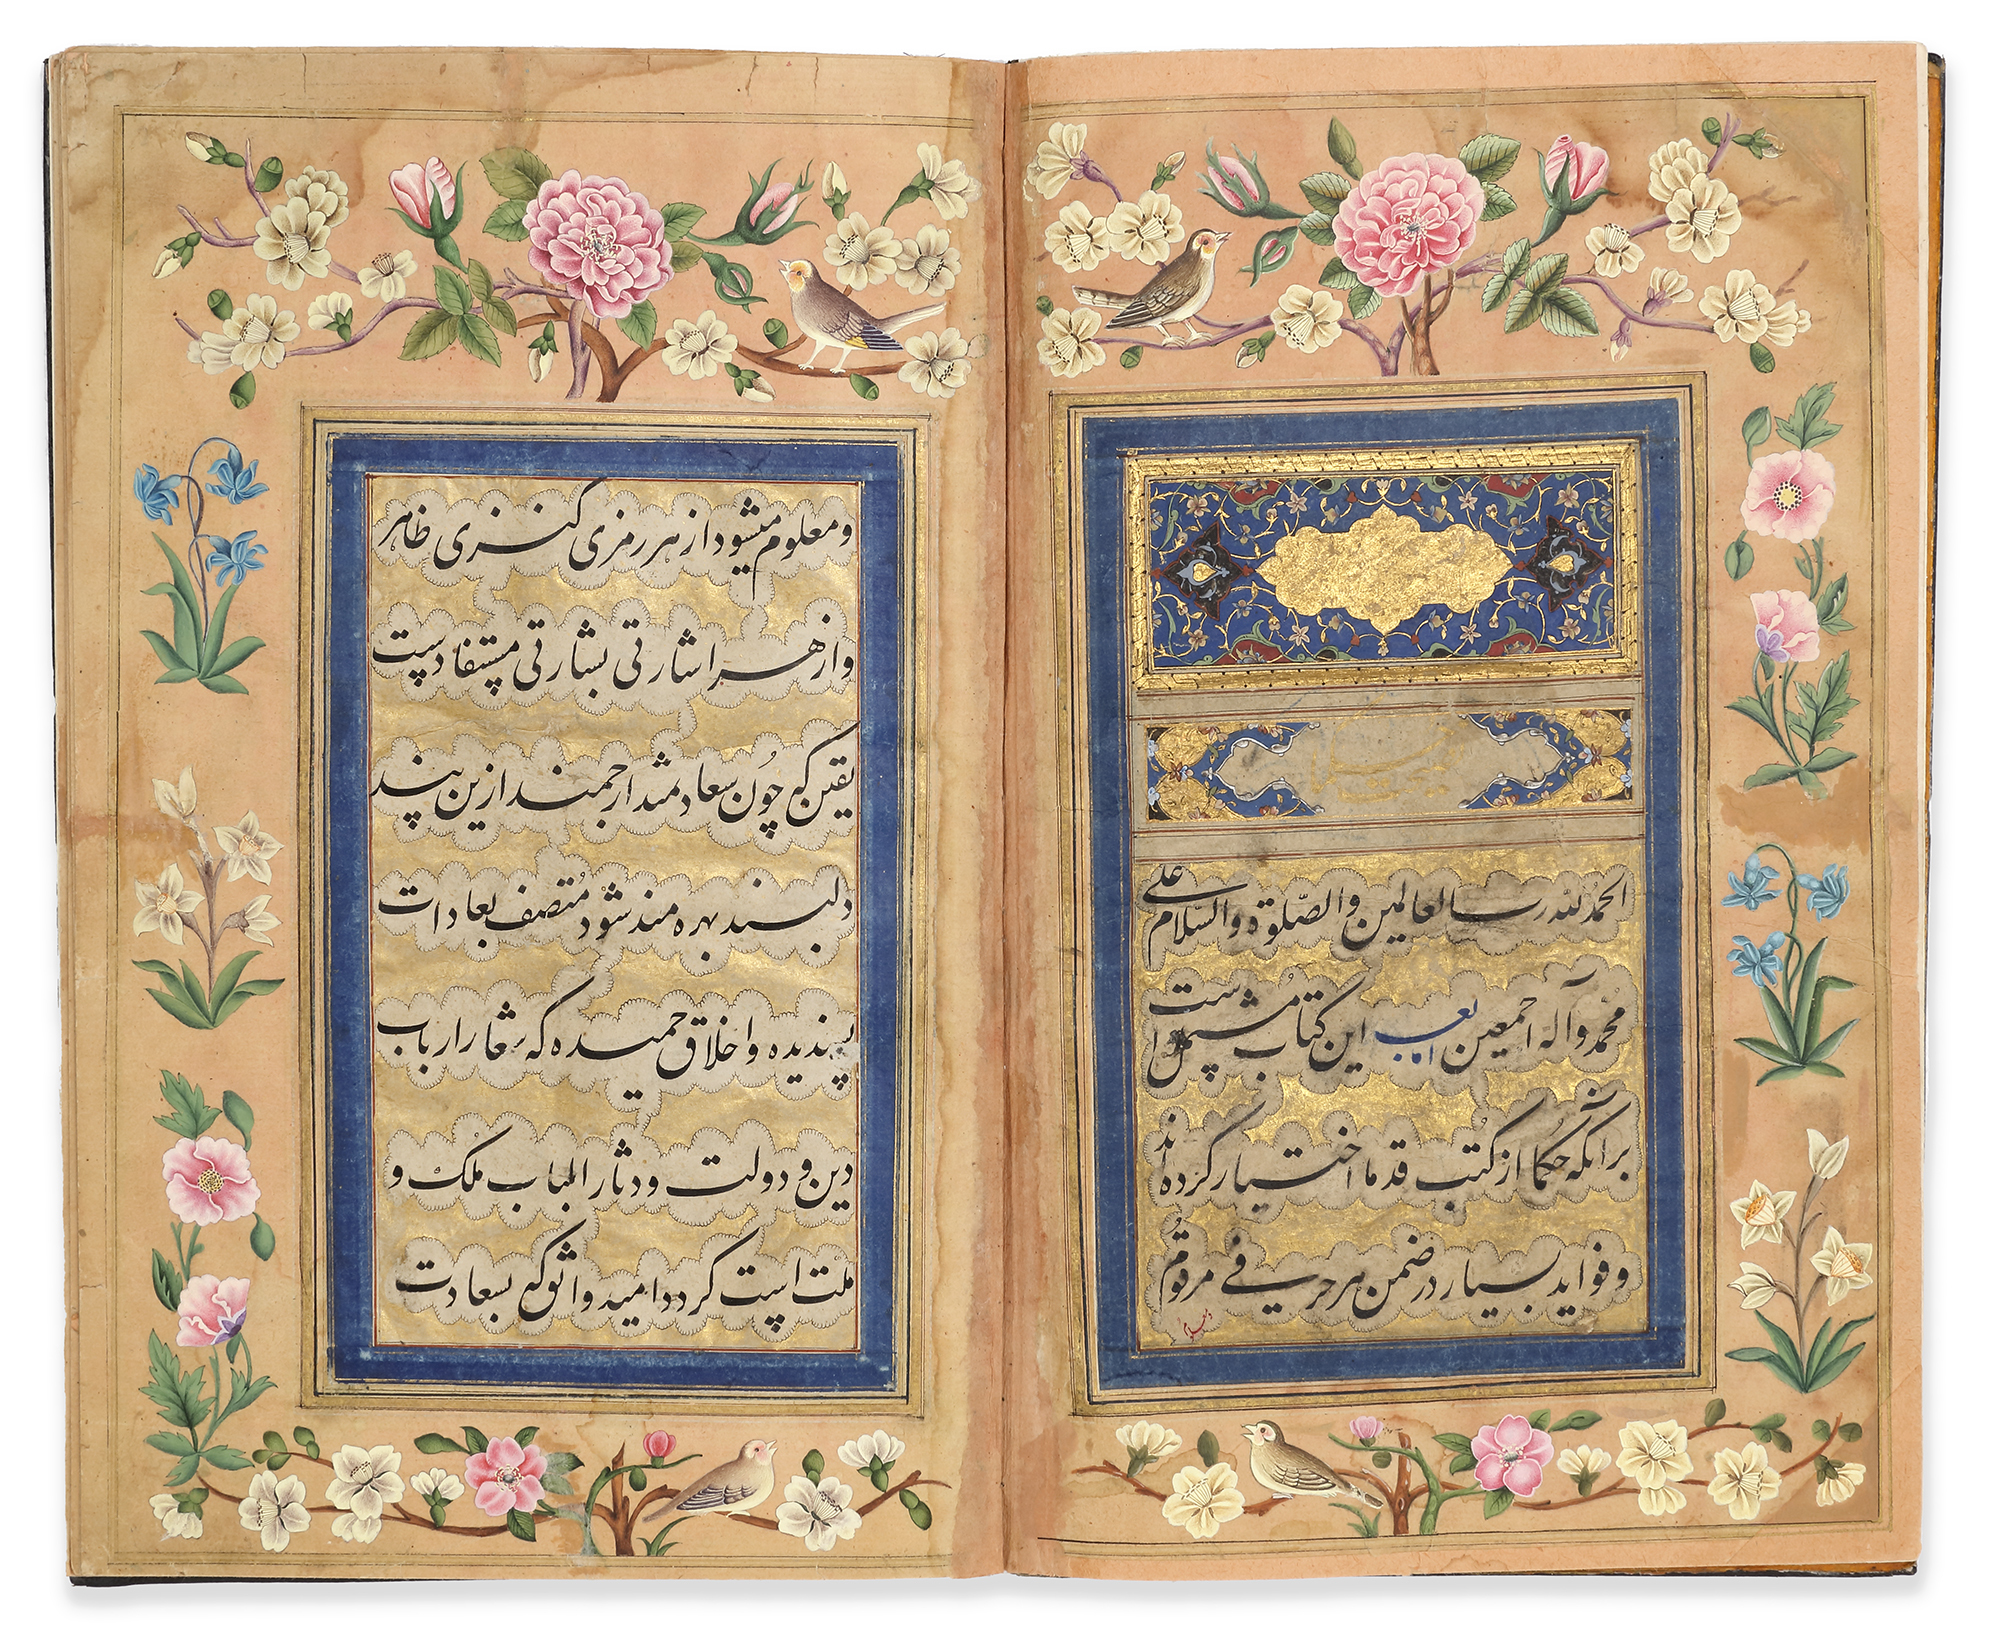 الحمد لله رب العالمین والصّلوة والسّلام علی
محمّد وآله اجمعین اما بعد این کتاب مشتمل است
برآنکه حکما از کتب قدما اختیار کرده اند
و فواید بسیار در ضمن هر حرفی مرقوم
و معلوم میشود از هر رمزی کنزی ظاهر
و از هر اشارتی بشارتی مستفادست
یقین که چون سعادتمند ارجمند ازین پند
دلبند بهره مند شود متصف بعادات
پسندیده و اخلاق حمیده که شعار ارباب
دین و دولت و دثار الباب ملک و
ملت است کردد امید واثق که بسعادت